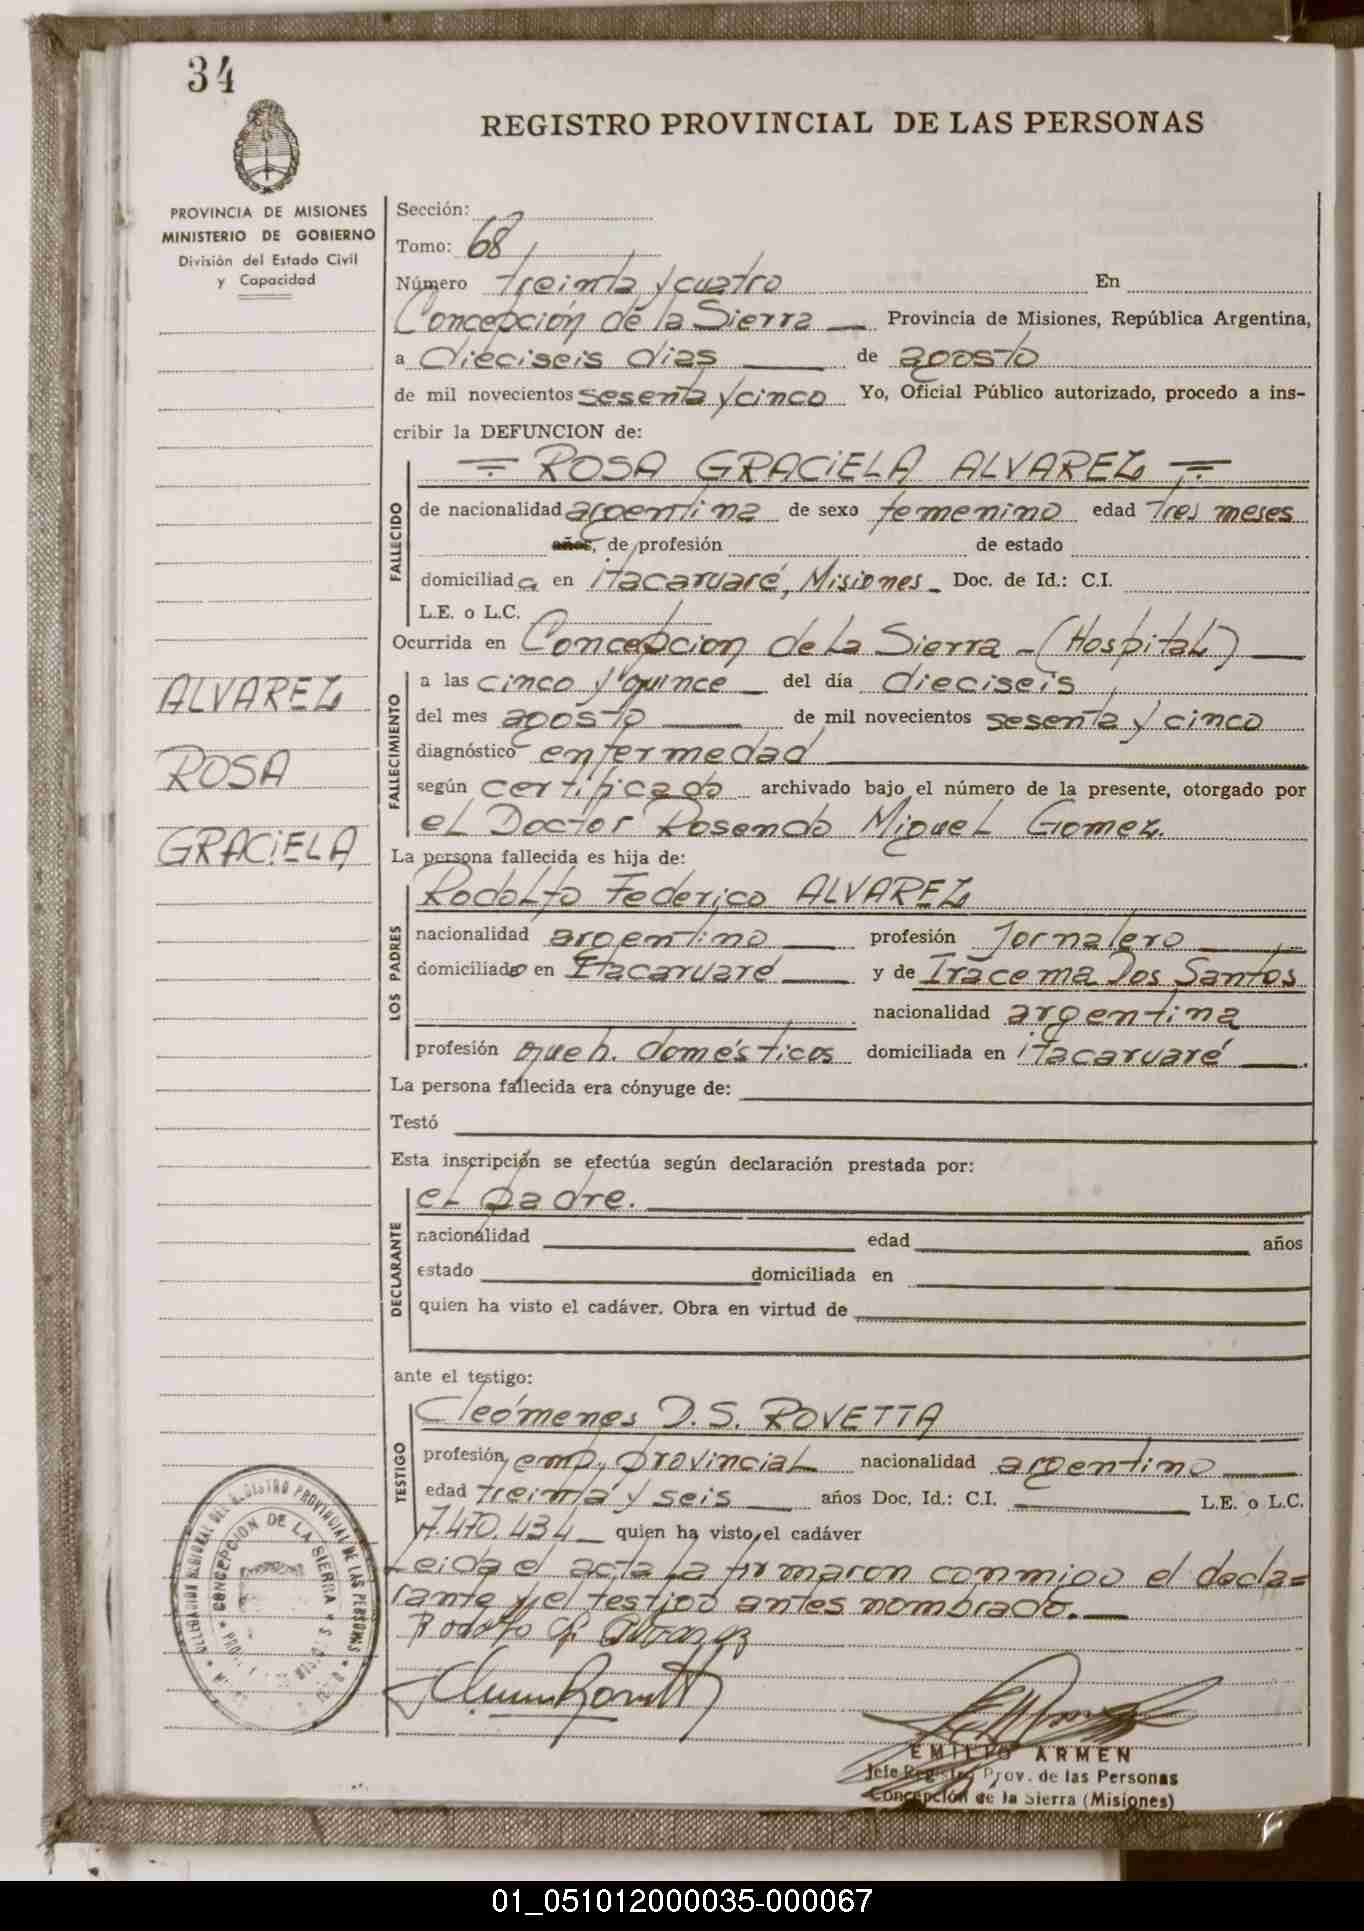 34
REGISTRO PROVINCIAL DE LAS PERSONAS
PROVINCIA DE MISIONES
MINISTERIO DE GOBIERNO
División del Estado Civil
y Capacidad
Sección:
Tomo: 68
Número treinta y cuatro En
Concepción de la Sierra Provincia de Misiones, República Argentina,
a dieciseis dias de agosto
de mil novecientos sesenta y cinco Yo, Oficial Público autorizado, procedo a ins-
cribir la DEFUNCION de:
ROSA GRACIELA ALVAREZ
FALLECIDO
de nacionalidad argentina de sexo femenino edad tres meses
años, de profesión de estado
domiciliada en itacaruaré, Misiones Doc. de Id.: C.I.
L.E. o L.C.
Ocurrida en Concepcion de La Sierra - (Hospital)
FALLECIMIENTO
a las cinco y quince del día dieciseis
del mes agosto de mil novecientos sesenta y cinco
diagnóstico enfermedad
según certificado archivado bajo el número de la presente, otorgado por
el Doctor Rosendo Miguel Gomez.
La persona fallecida es hija de:
LOS PADRES
Rodolfo Federico ALVAREZ
nacionalidad argentino profesión Jornalero
domiciliado en Itacaruaré y de Iracema Dos Santos
nacionalidad argentina
profesión queh. domésticos domiciliada en itacaruaré
La persona fallecida era cónyuge de:
Testó
Esta inscripción se efectúa según declaración prestada por:
DECLARANTE
el padre.
nacionalidad edad años
estado domiciliada en
quien ha visto el cadáver. Obra en virtud de
ante el testigo:
TESTIGO
Cleómenes D. S. ROVETTA
profesión emp. provincial nacionalidad argentino
edad treinta y seis años Doc. Id.: C.I. L.E. o L.C.
7.470.434 quien ha visto el cadáver
Leida el acta la firmaron conmigo el decla=
rante y el testigo antes nombrado.
Rodolfo F. Alvarez
ALVAREZ
ROSA
GRACIELA
DELEGACION REGIONAL DEL REGISTRO PROVINCIAL DE LAS PERSONAS
CONCEPCION DE LA SIERRA
EMILIO ARMEN
Jefe Registro Prov. de las Personas
Concepción de la Sierra (Misiones)
01_051012000035-000067